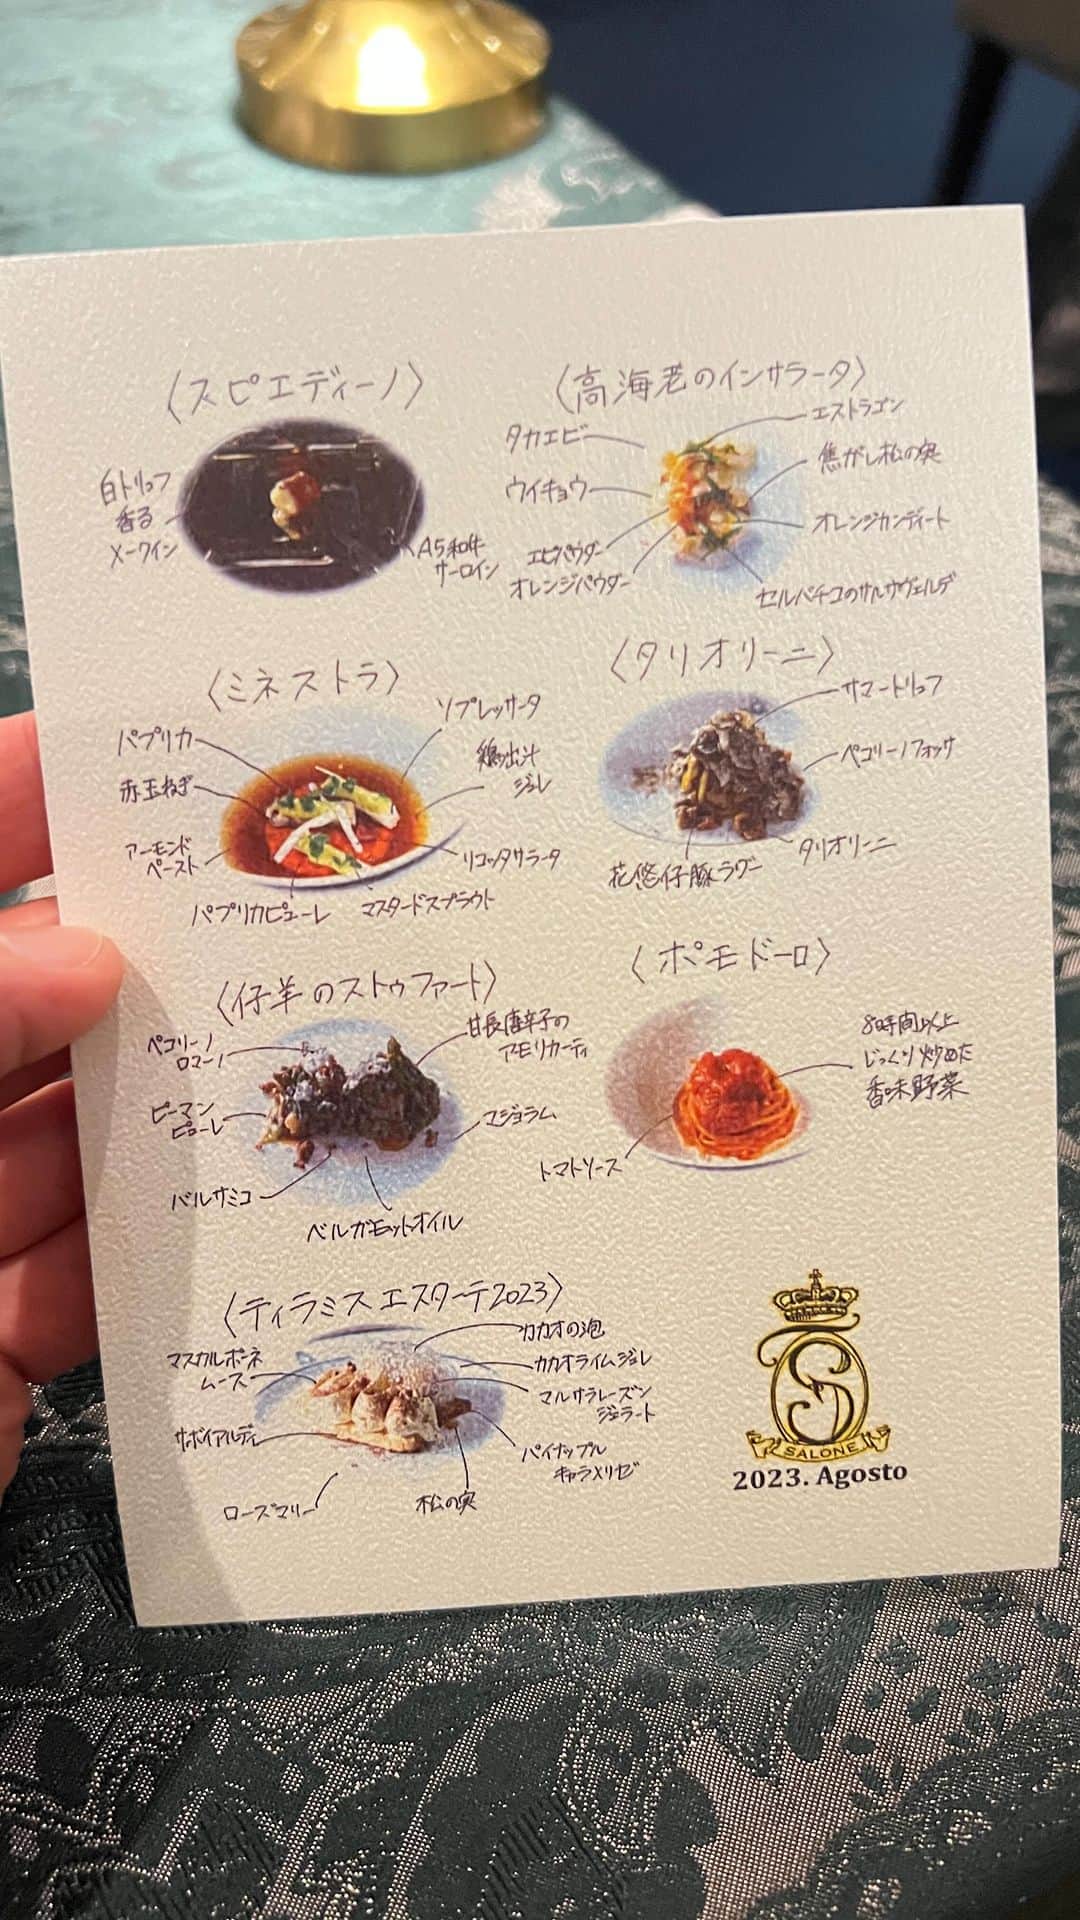 〈スピエディーノ〉
白トリュフ
香る
メークイン
A5和牛
サーロイン
〈高海老のインサラータ〉
タカエビ
エストラゴン
ウイキョウ
焦がし松の実
エビパウダー
オレンジカンディート
オレンジパウダー
セルバチコのサルサヴェルデ
〈ミネストラ〉
パプリカ
ソプレッサータ
赤玉ねぎ
鶏出汁
ジュレ
アーモンド
ペースト
リコッタサラータ
パプリカピューレ
マスタードスプラウト
〈タリオリーニ〉
サマートリュフ
ペコリーノフォッサ
花悠仔豚ラグー
タリオリーニ
〈仔羊のストゥファート〉
ペコリーノ
ロマーノ
甘長唐辛子の
アモリカーティ
ピーマン
ピューレ
マジョラム
バルサミコ
ベルガモットオイル
〈ポモドーロ〉
8時間以上
じっくり炒めた
香味野菜
トマトソース
〈ティラミス エスターテ2023〉
マスカルポーネ
ムース
カカオの泡
カカオライムジュレ
マルサラレーズン
ジェラート
サボイアルディ
パイナップル
キャラメリゼ
ローズマリー
松の実
SALONE
2023. Agosto